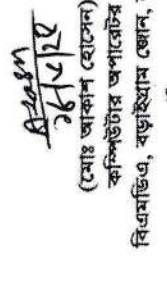 ২৬/৮/২৫
(মোঃ আকাশ হোসেন)
কম্পিউটার অপারেটর
বিএমডিএ, বড়াইগ্রাম জোন,